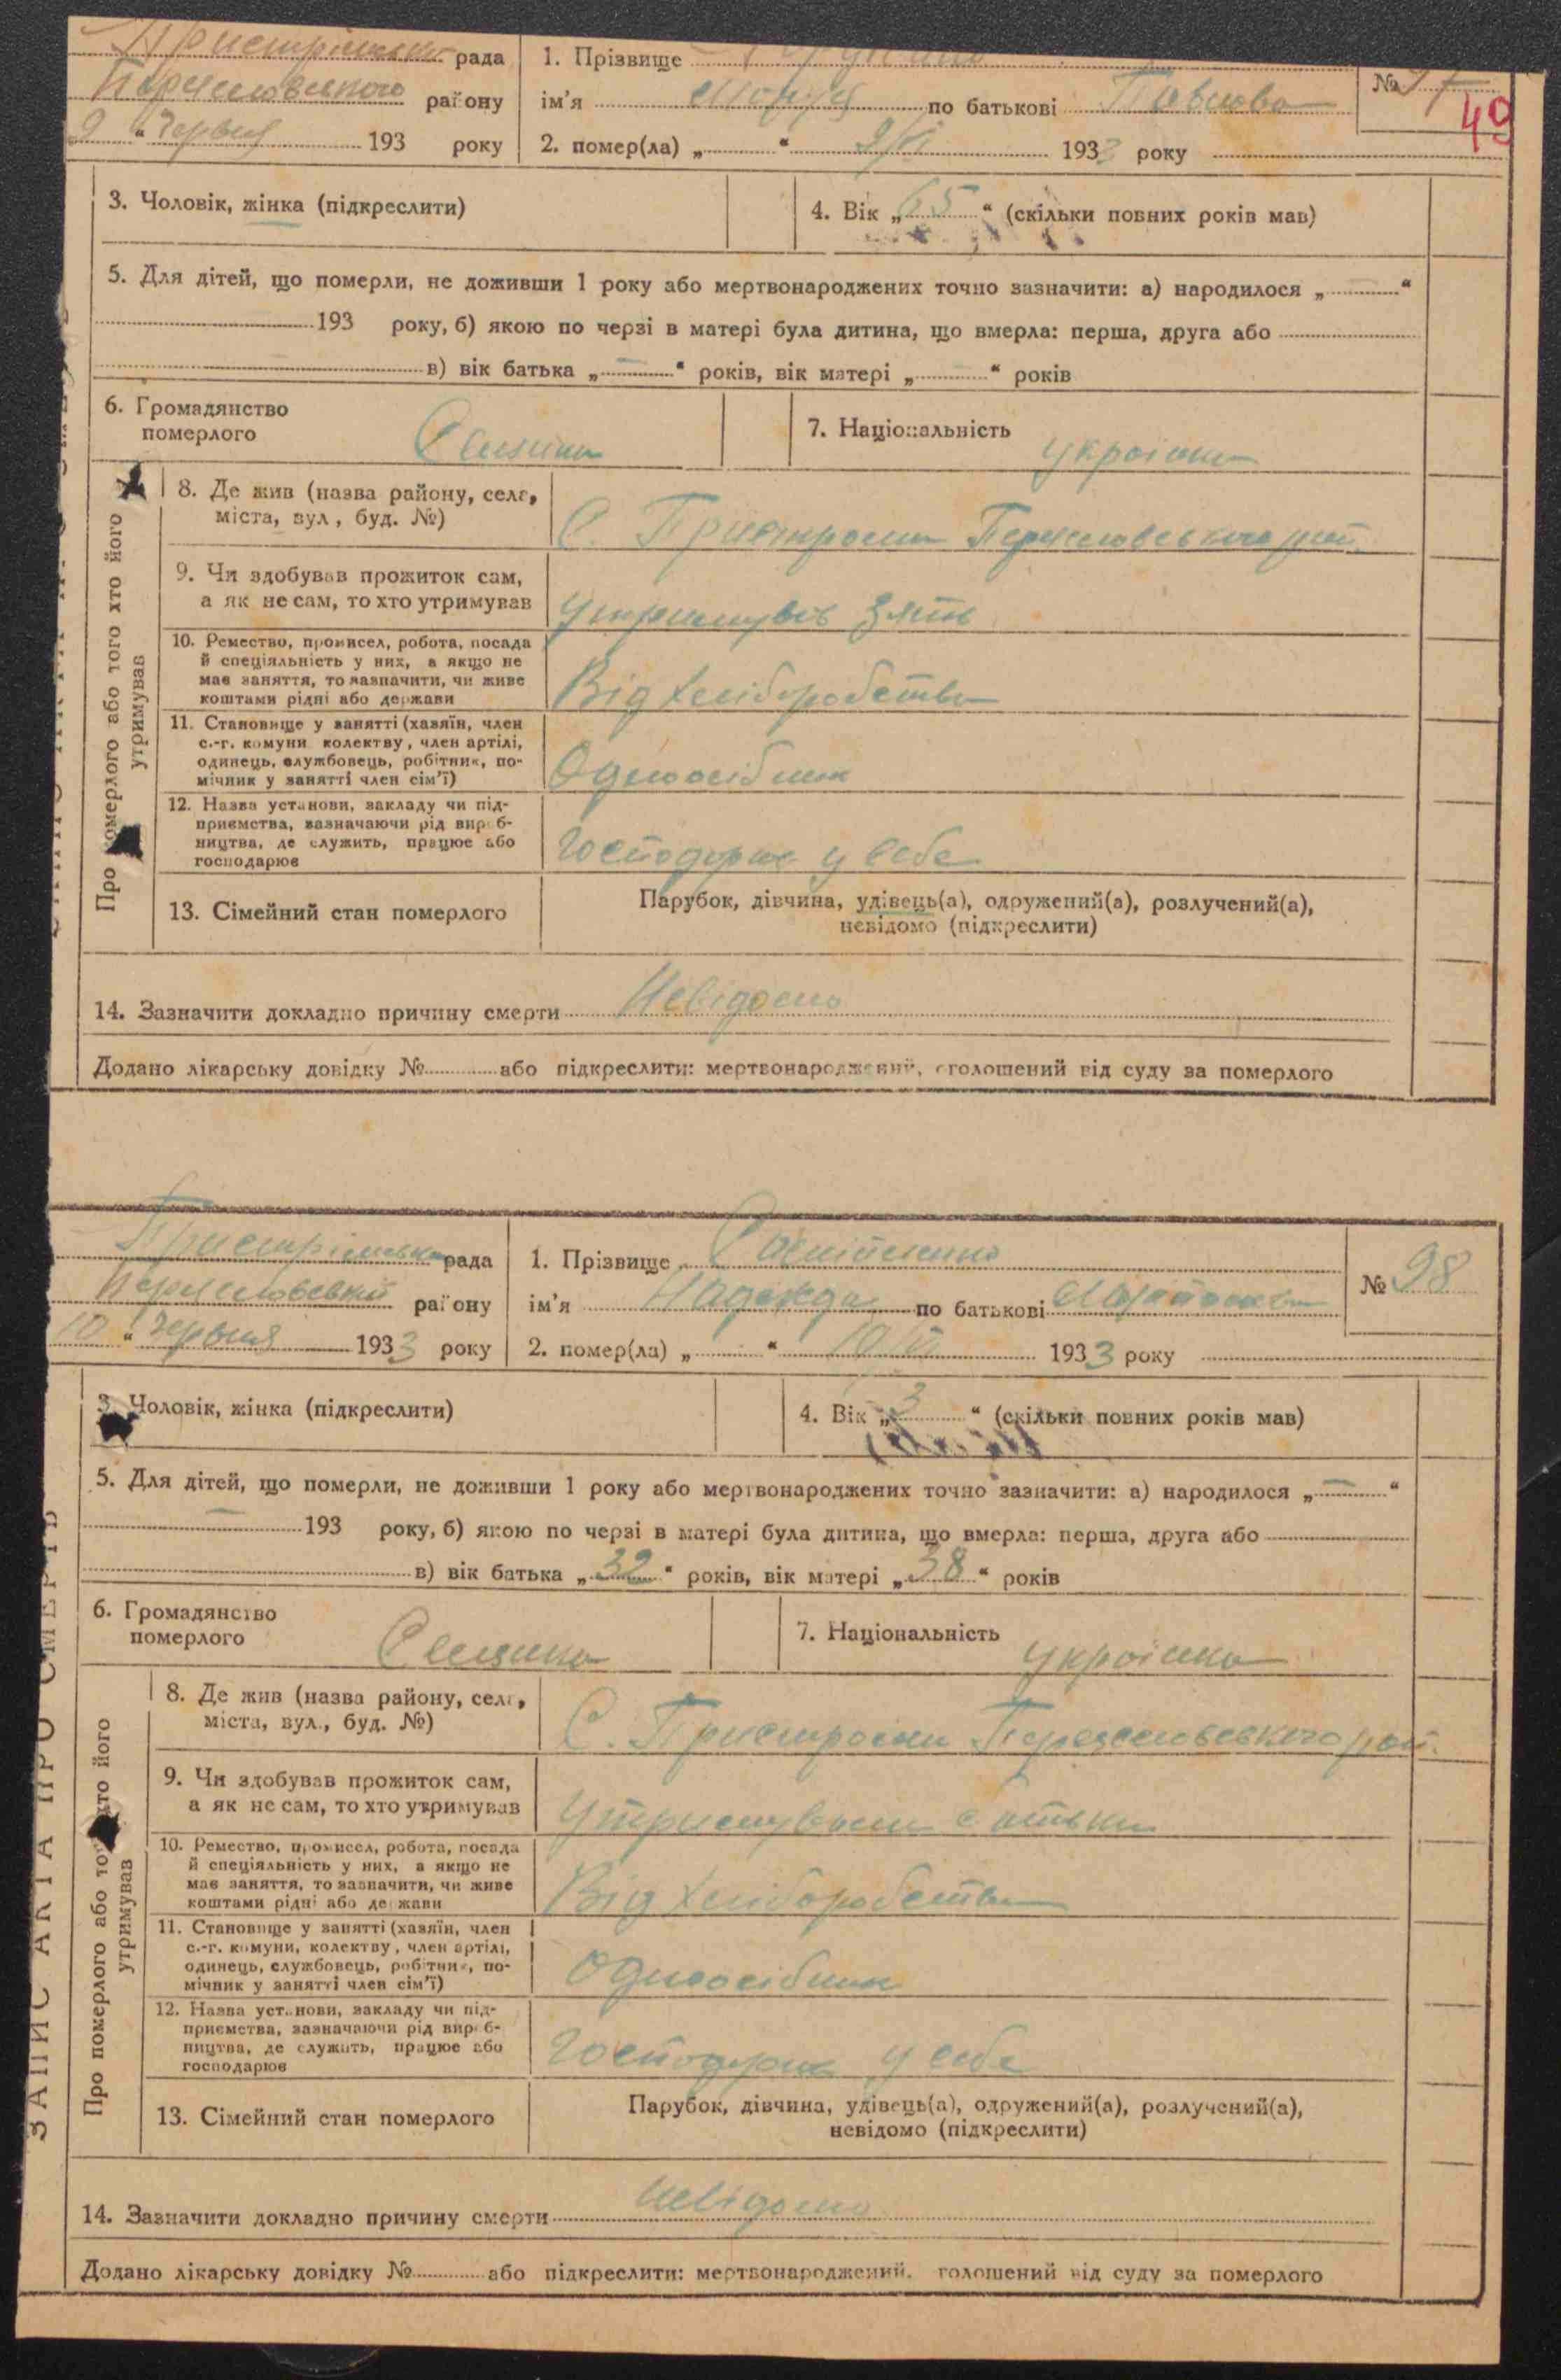 рада
району
9 " червня 193 року
1. Прізвище
ім'я по батькові Павлова
№ 97
49
2. помер(ла) „ “ 9/VI 1933 року
3. Чоловік, жінка (підкреслити)
4. Вік „65“ (скільки повних років мав)
5. Для дітей, що померли, не доживши 1 року або мертвонароджених точно зазначити: а) народилося „ — “
193 року, б) якою по черзі в матері була дитина, що вмерла: перша, друга або
в) вік батька „ — “ років, вік матері „ — “ років
6. Громадянство
померлого
7. Національність
українка
Про померлого або того хто його
утримував
8. Де жив (назва району, села,
міста, вул., буд. №)
С. Пристроми
9. Чи здобував прожиток сам,
а як не сам, то хто утримував
утримував зять
10. Ремество, промисел, робота, посада
й спеціяльність у них, а якщо не
має заняття, то зазначити, чи живе
коштами рідні або держави
Від хліборобства
11. Становище у занятті (хазяїн, член
с.-г. комуни колектву, член артілі,
одинець, службовець, робітник, по-
мічник у занятті член сім'ї)
Одноосібник
12. Назва установи, закладу чи під-
приємства, зазначаючи рід вироб-
ництва, де служить, працює або
господарює
у себе
13. Сімейний стан померлого
Парубок, дівчина, удівець(а), одружений(а), розлучений(а),
невідомо (підкреслити)
14. Зазначити докладно причину смерти Невідомо
Додано лікарську довідку № або підкреслити: мертвонароджений, оголошений від суду за померлого
ЗАПИС АКТА ПРО СМЕРТЬ
рада
району
10 " червня 1933 року
1. Прізвище
ім'я Надежда по батькові
№ 98
2. помер(ла) „ “ 10/VI 1933 року
3. Чоловік, жінка (підкреслити)
4. Вік „3“ (скільки повних років мав)
5. Для дітей, що померли, не доживши 1 року або мертвонароджених точно зазначити: а) народилося „ — “
193 року, б) якою по черзі в матері була дитина, що вмерла: перша, друга або
в) вік батька „32“ років, вік матері „38“ років
6. Громадянство
померлого
7. Національність
українка
Про померлого або того хто його
утримував
8. Де жив (назва району, села,
міста, вул., буд. №)
С. Пристроми
9. Чи здобував прожиток сам,
а як не сам, то хто утримував
утримували батьки
10. Ремество, промисел, робота, посада
й спеціяльність у них, а якщо не
має заняття, то зазначити, чи живе
коштами рідні або держави
Від хліборобства
11. Становище у занятті (хазяїн, член
с.-г. комуни, колектву, член артілі,
одинець, службовець, робітник, по-
мічник у занятті член сім'ї)
Одноосібник
12. Назва установи, закладу чи під-
приємства, зазначаючи рід вироб-
ництва, де служить, працює або
господарює
у себе
13. Сімейний стан померлого
Парубок, дівчина, удівець(а), одружений(а), розлучений(а),
невідомо (підкреслити)
14. Зазначити докладно причину смерти Невідомо
Додано лікарську довідку № або підкреслити: мертвонароджений, голошений від суду за померлого